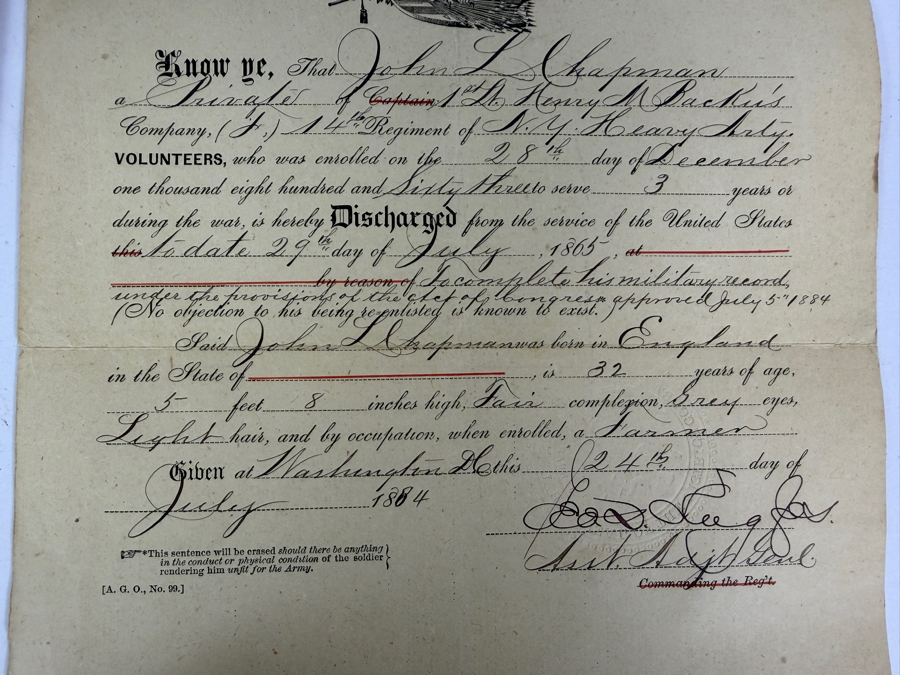 Know ye, That John L Chapman
a Private of Captain 1st Lt. Henry M Backus's
Company, (F.) 14th Regiment of N.Y. Heavy Arty.
VOLUNTEERS, who was enrolled on the 28th day of December
one thousand eight hundred and Sixty three to serve 3 years or
during the war, is hereby Discharged from the service of the United States
this to date 29th day of July, 1865, at
by reason of To complete his military record
under the provisions of the act of Congress approved July 5th 1884
(No objection to his being re-enlisted is known to exist.
Said John L Chapman was born in England
in the State of , is 32 years of age,
5 feet 8 inches high, Fair complexion, Grey eyes,
Light hair, and by occupation, when enrolled, a Farmer
Given at Washington DC this 24th day of
July 1884
☞*This sentence will be erased should there be anything
in the conduct or physical condition of the soldier
rendering him unfit for the Army.
[A. G. O., No. 99.]
Asst. Adjt Genl.
Commanding the Reg't.